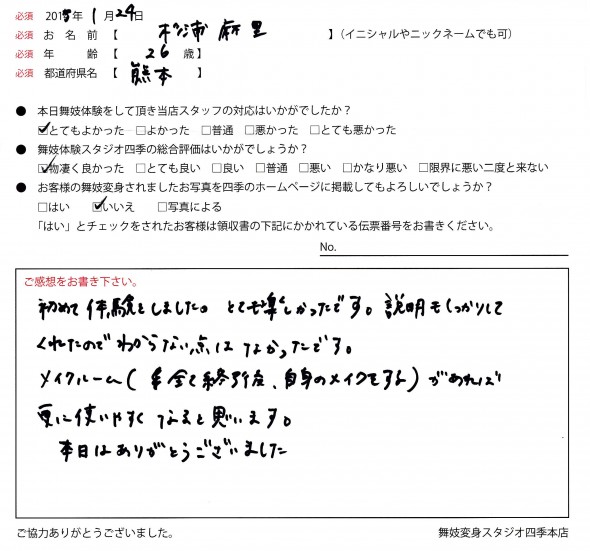 必須 2015年 1月24日
必須 お 名 前 【 松浦 麻里 】(イニシャルやニックネームでも可)
必須 年 齢 【 26 歳】
必須 都道府県名 【 熊本 】
● 本日舞妓体験をして頂き当店スタッフの対応はいかがでしたか?
☑とてもよかった □よかった □普通 □悪かった □とても悪かった
● 舞妓体験スタジオ四季の総合評価はいかがでしょうか?
☑物凄く良かった □とても良い □良い □普通 □悪い □かなり悪い □限界に悪い二度と来ない
● お客様の舞妓変身されましたお写真を四季のホームページに掲載してもよろしいでしょうか?
□はい ☑いいえ □写真による
「はい」とチェックをされたお客様は領収書の下記にかかれている伝票番号をお書きください。
No.
ご感想をお書き下さい。
初めて体験をしました。とても楽しかったです。説明もしっかりして
くれたのでわからない点はなかったです。
メイクルーム(全て終了後、自身のメイクをする)があれば
更に使いやすくなると思います。
本日はありがとうございました
ご協力ありがとうございました。
舞妓変身スタジオ四季本店